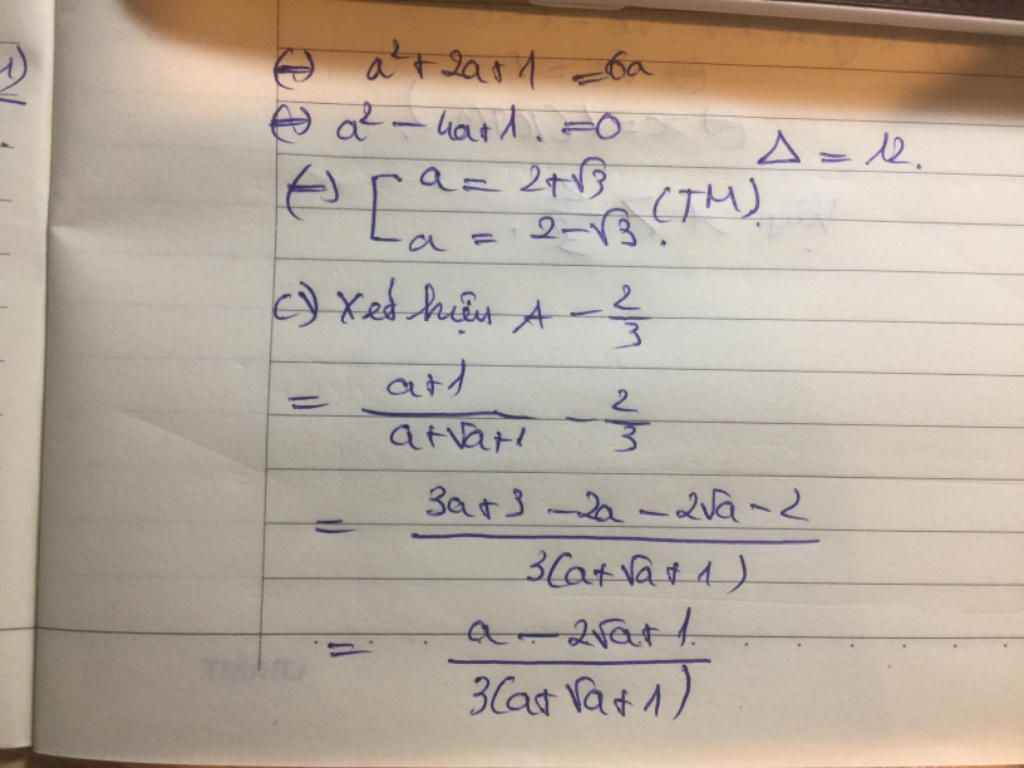 1)
⇔ a² + 2a + 1 = 6a
⇔ a² - 4a + 1. = 0 Δ = 12.
⇔ [ a = 2+√3
a = 2-√3. (TM).
c) Xét hiệu A - 2/3
= (a+1)/(a+√a+1) - 2/3
= (3a+3 - 2a - 2√a - 2)/(3(a+√a+1))
= (a - 2√a + 1.)/(3(a+√a+1))